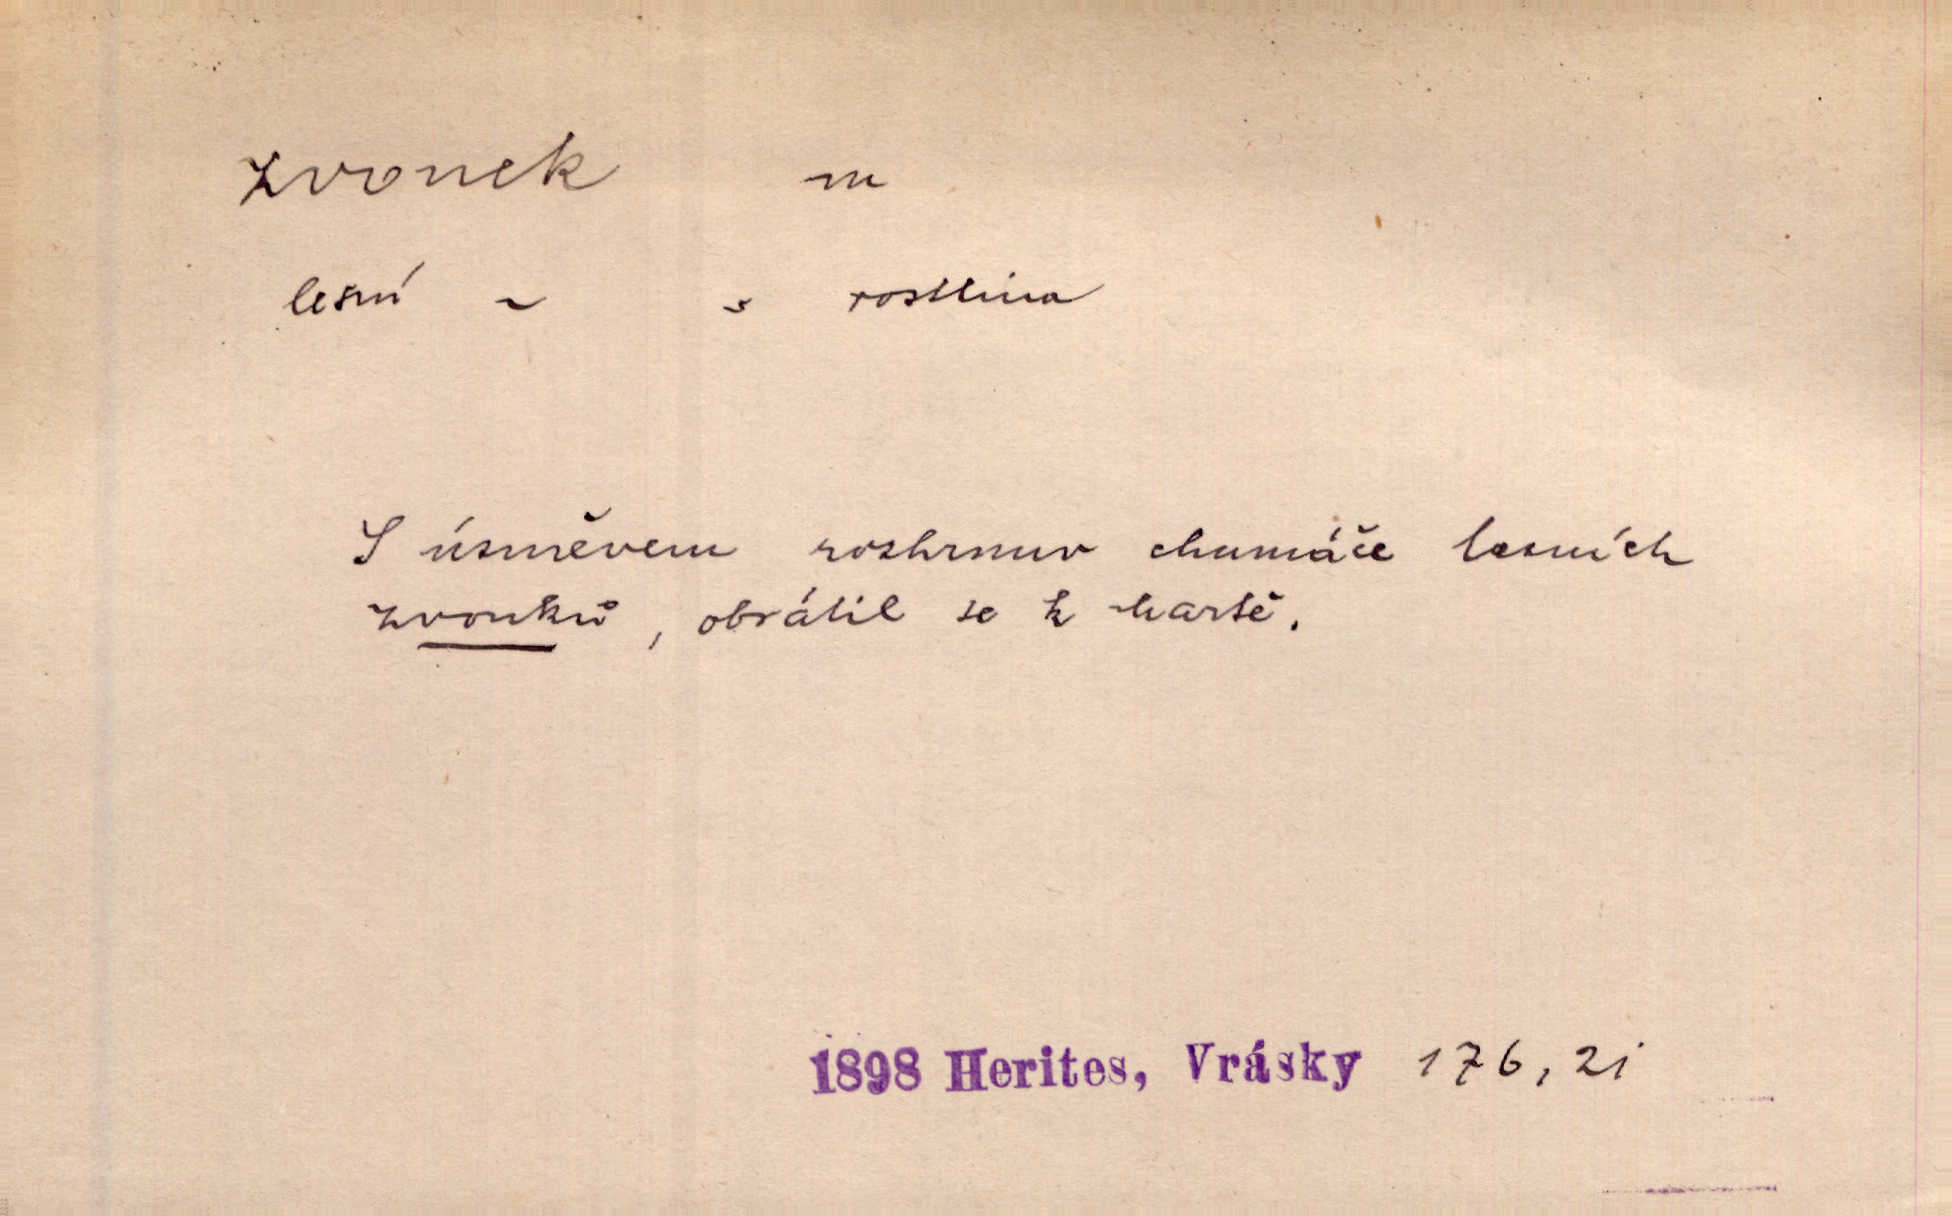 zvonek m
lesní ~ s rostlina
S úsměvem rozhrnuv chumáče lesních
zvonků, obrátil se k
1898 Herites, Vrásky 176, 21